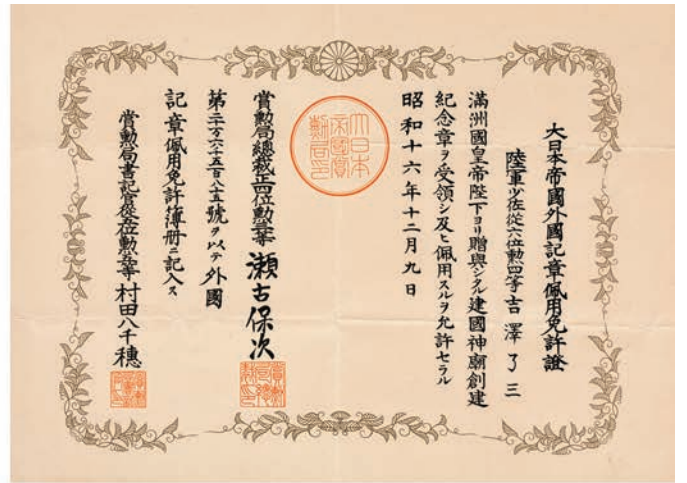 大日本帝國外國記章佩用免許證
陸軍少佐從六位勲四等吉澤了三
滿洲國皇帝陛下ヨリ贈與シタル建國神廟創建
紀念章ヲ受領シ及ヒ佩用スルヲ允許セラル
昭和十六年十二月九日
大日本
帝國賞
勲局印
賞勲局總裁正四位勲二等瀬古保次
第二万六千五百八十五號ヲ以テ外國
記章佩用免許簿册ニ記入ス
賞勲局書記官從五位勲五等村田八千穗